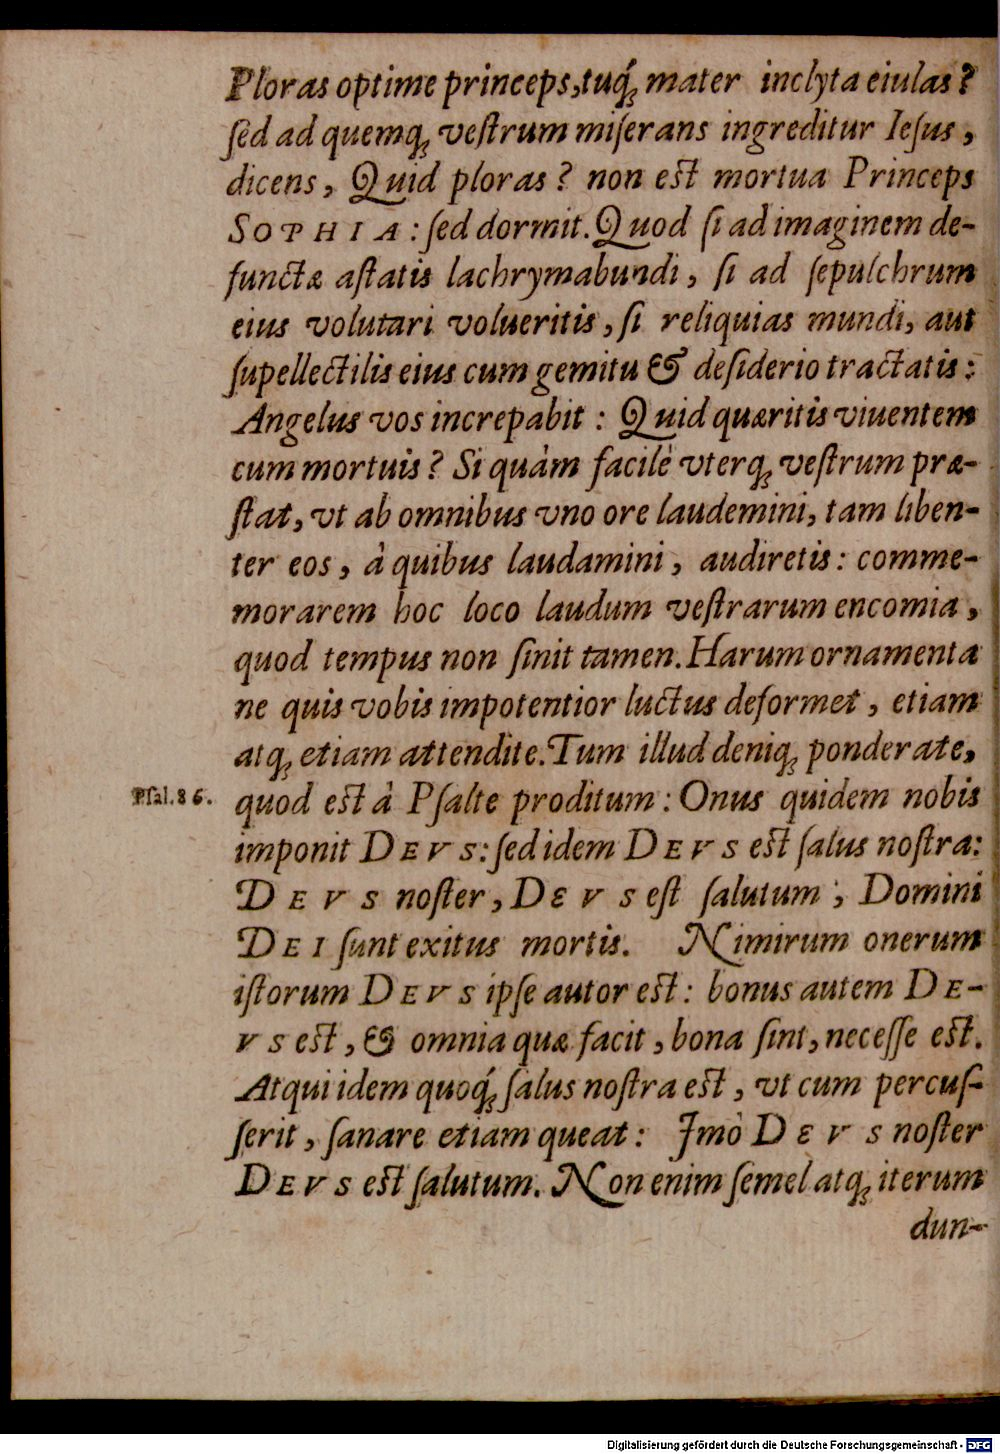 Ploras optime princeps, tuq́; mater inclyta eiulas?
ſed ad quemq; veſtrum miſerans ingreditur Ieſus,
dicens, Quid ploras? non eſt mortua Princeps
SOPHIA: ſed dormit. Quod ſi ad imaginem de-
functæ aſtatis lachrymabundi, ſi ad ſepulchrum
eius volutari volueritis, ſi reliquias mundi, aut
ſupellectilis eius cum gemitu & deſiderio tractatis:
Angelus vos increpabit: Quid quæritis viuentem
cum mortuis? Si quàm facilè vterq; veſtrum præ-
ſtat, vt ab omnibus vno ore laudemini, tam liben-
ter eos, à quibus laudamini, audiretis: comme-
morarem hoc loco laudum veſtrarum encomia,
quod tempus non ſinit tamen. Harum ornamenta
ne quis vobis impotentior luctus deformet, etiam
atq; etiam attendite. Tum illud deniq; ponderate,
Pſal. 86. quod eſt à Pſalte proditum: Onus quidem nobis
imponit DEVS: ſed idem DEVS eſt ſalus noſtra:
DEVS noſter, DEVS eſt ſalutum; Domini
DEI ſunt exitus mortis. Nimirum onerum
iſtorum DEVS ipſe autor eſt: bonus autem DE-
VS eſt, & omnia quæ facit, bona ſint, neceſſe eſt.
Atqui idem quoq́; ſalus noſtra eſt, vt cum percuſ-
ſerit, ſanare etiam queat: Imò DEVS noſter
DEVS eſt ſalutum. Non enim ſemel atq; iterum
dun-
Digitalisierung gefördert durch die Deutsche Forschungsgemeinschaft - DFG